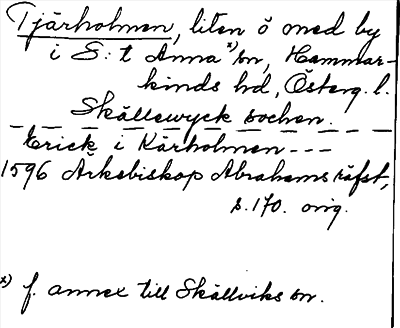 Tjärholmen, liten ö med by
i S:t Anna x) sn, Hammar-
kinds hd, Österg. l.
Skällewyck sochen.
Erick i Kärholmen ---
1596 Ärkebiskop Abrahams räfst,
s. 170. orig.
x) f. annex till Skällviks sn.